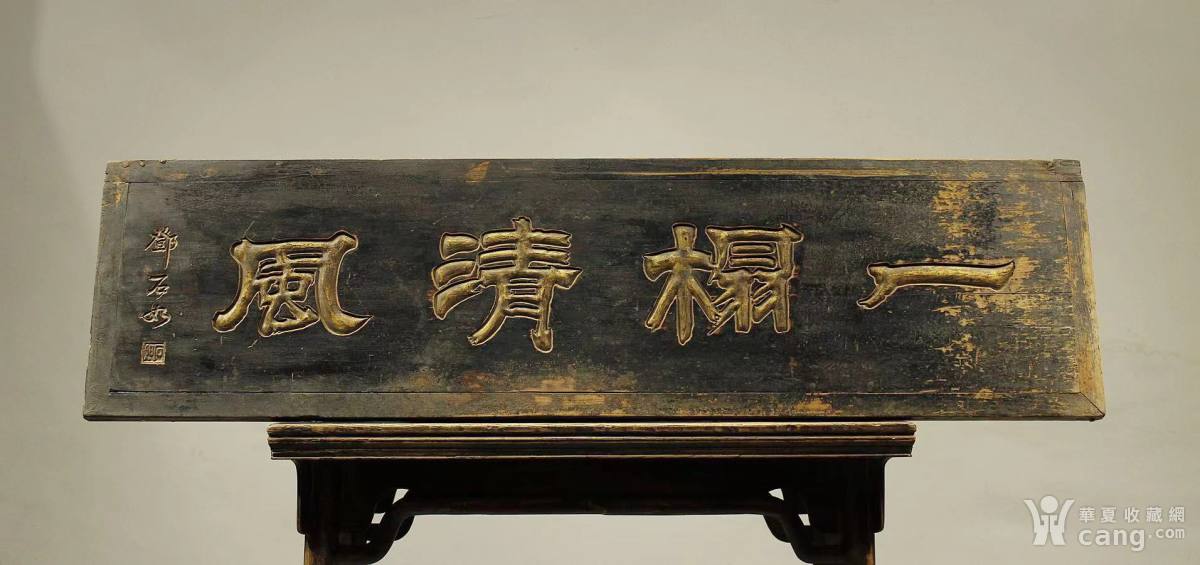 一榻清風
鄧石如
華夏收藏網
cang.com